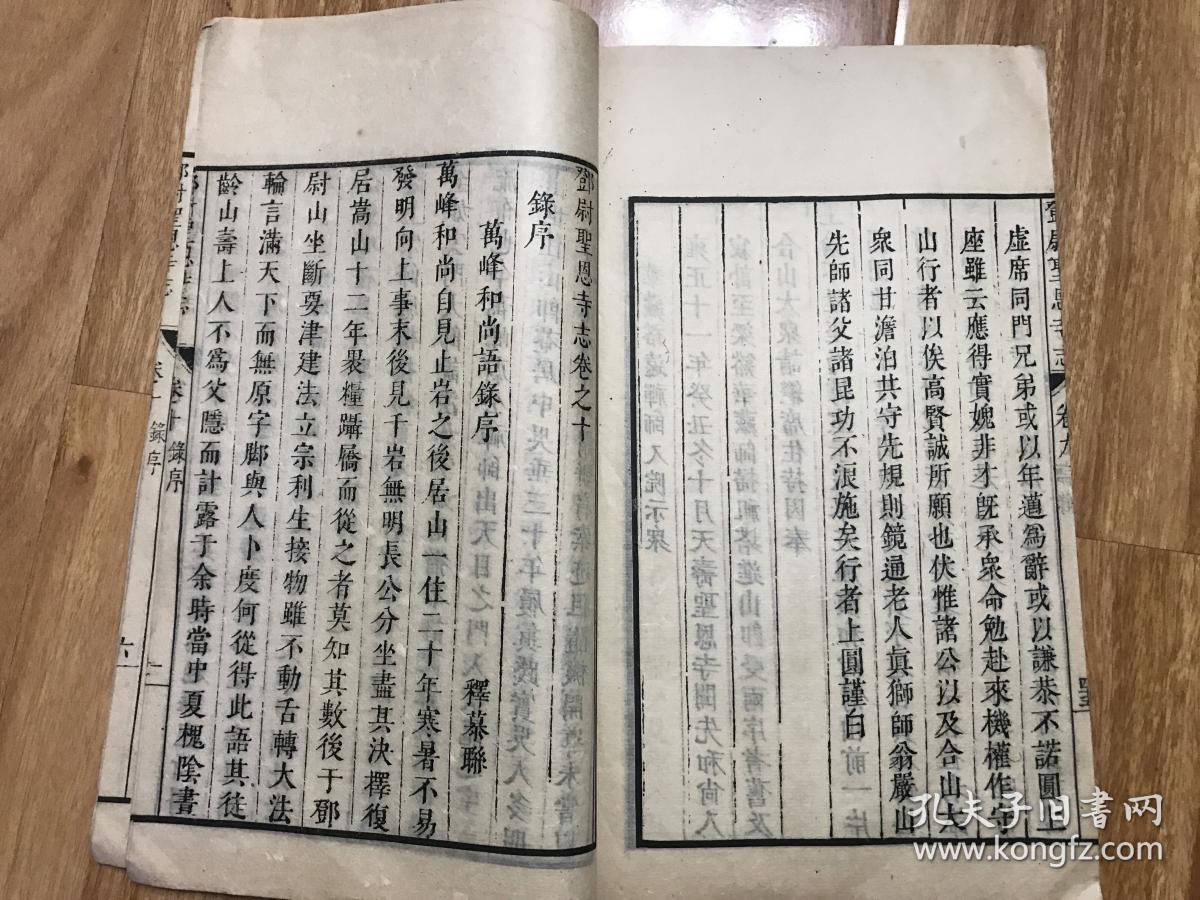 虛席同門兄弟或以年邁爲辭或以謙恭不諾圓上
座雖云應得實媿非才旣承衆命勉赴來機權作守
山行者以俟高賢誠所願也伏惟諸公以及合山大
衆同甘澹泊共守先規則鏡通老人眞獅師翁嚴山
先師諸父諸昆功不浪施矣行者上圓謹白
鄧尉聖恩寺志
卷九
鄧尉聖恩寺志卷之十
錄序
萬峰和尚語錄序
釋慕聯
萬峰和尚自見止岩之後居山一住二十年寒暑不易
發明向上事末後見千岩無明長公分坐盡其決擇復
居嵩山十二年裹糧躡屩而從之者莫知其數後于鄧
尉山坐斷要津建法立宗利生接物雖不動舌轉大法
輪言滿天下而無原字脚與人卜度何從得此語其徒
齡山壽上人不爲父隱而計露于余時當中夏槐陰晝
卷十
錄序
一
錄序
六
孔夫子旧书网
www.kongfz.com